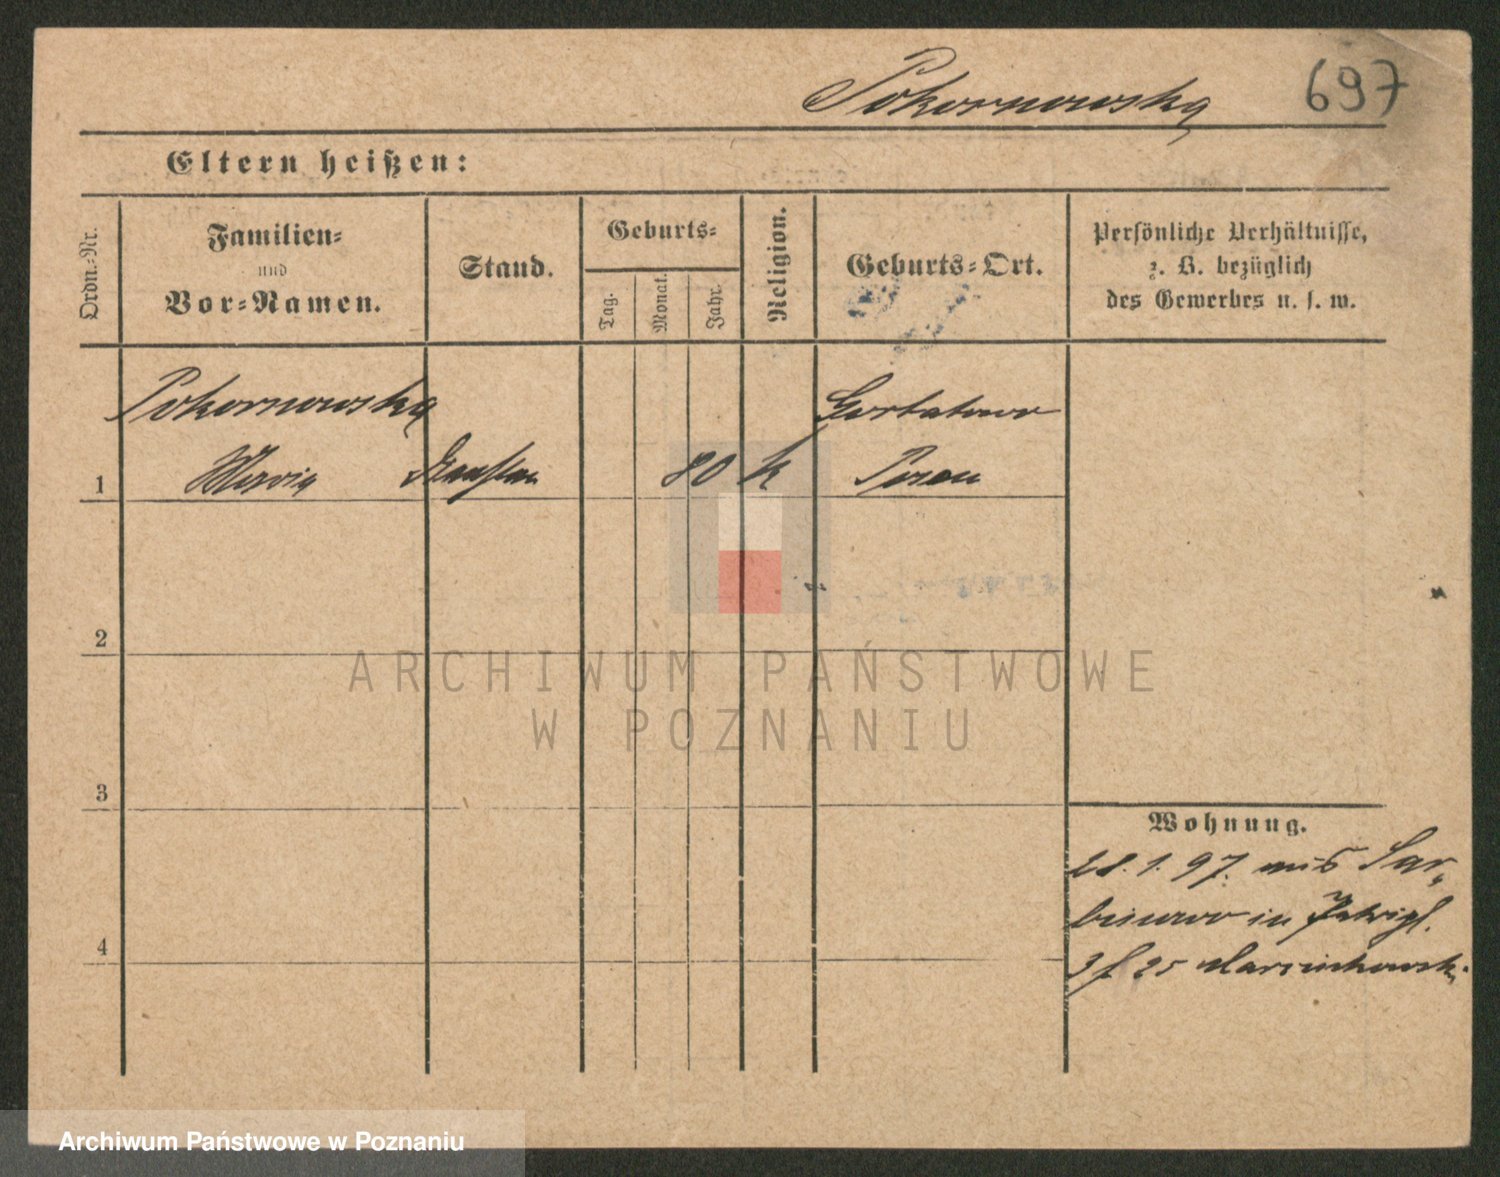 Pokornowska 697
Eltern heißen:
Ordn.-Nr.
Familien-
und
Vor-Namen.
Stand.
Geburts-
Tag.
Monat.
Jahr.
Religion.
Geburts-Ort.
Persönliche Verhältnisse,
z. B. bezüglich
des Gewerbes u. s. w.
Pokornowska Gortatowo
1 Maria 80 k Posen
2
3
4
Wohnung.
28.1.97. aus Sar-
binowo in
25 Marcinkowski
ARCHIWUM PAŃSTWOWE
W POZNANIU
Archiwum Państwowe w Poznaniu